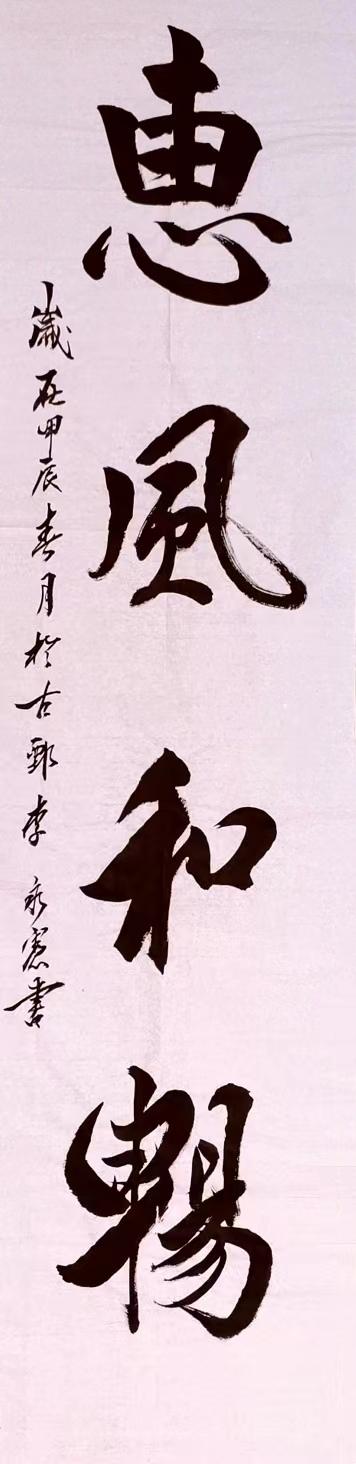 惠風和暢
歲在甲辰春月於古鄄李永憲書